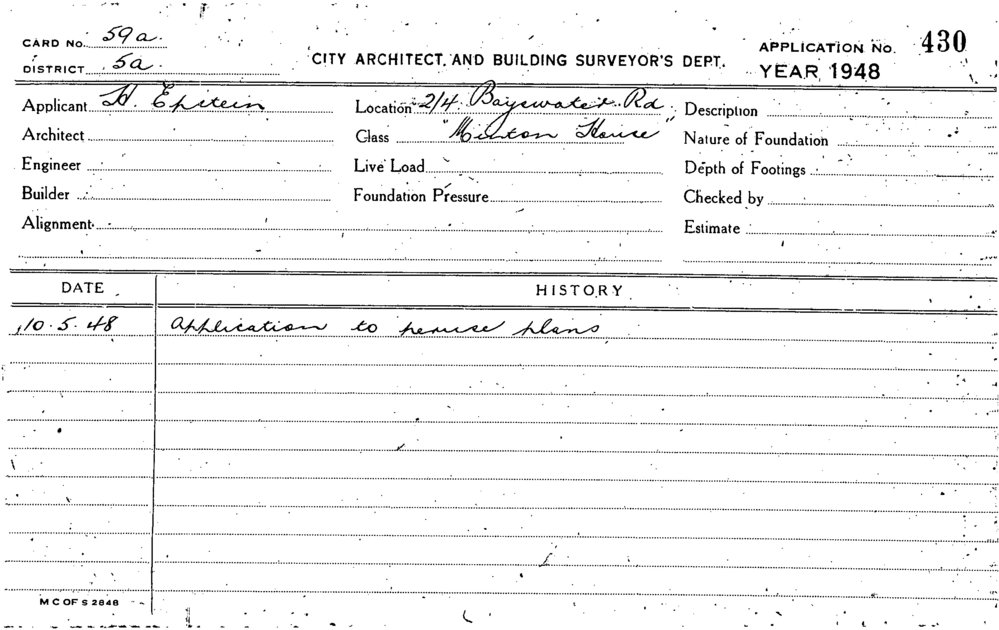 CARD No. 59a.
DISTRICT 5a.
CITY ARCHITECT AND BUILDING SURVEYOR'S DEPT.
APPLICATION No. 430
YEAR 1948
Applicant H. Epstein
Location 2/4 Bayswater Rd
Description
Architect
Class "Minton House"
Nature of Foundation
Engineer
Live Load
Depth of Footings
Builder
Foundation Pressure
Checked by
Alignment
Estimate
DATE
HISTORY
10.5.48 Application to peruse plans
M C OF S 2848